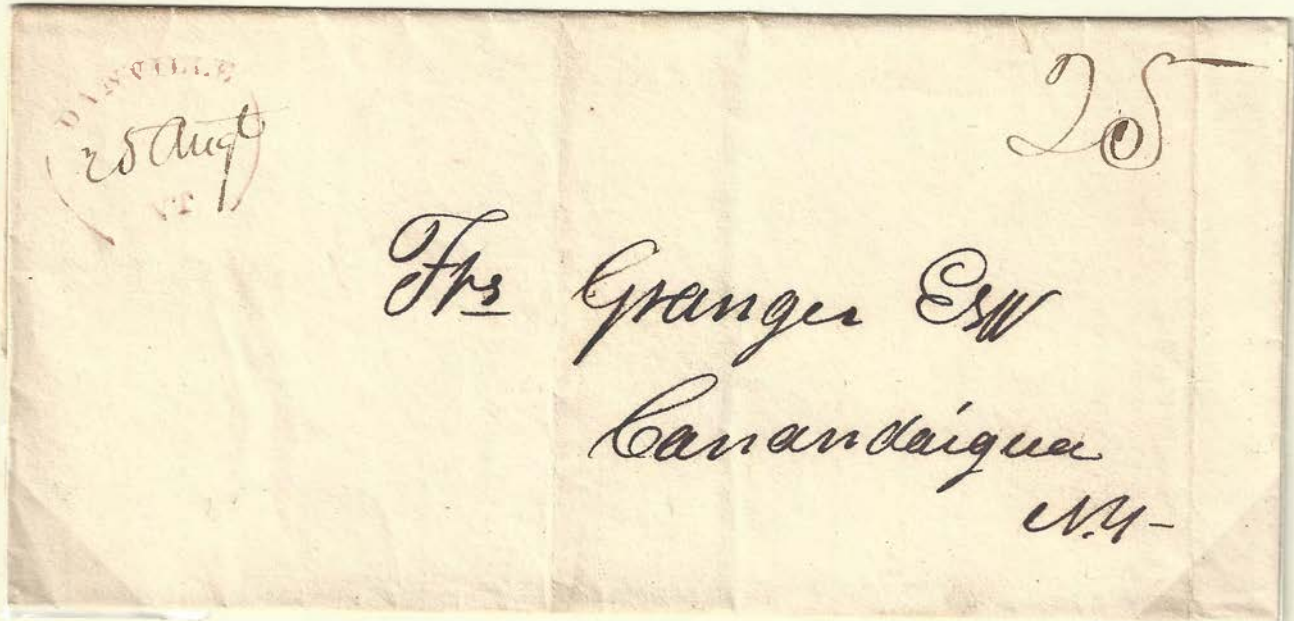 DANVILLE
25 Augt
VT
25
Frs Granger Esq
Canandaigua
N.Y-